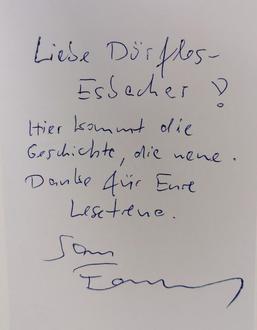 Liebe Dörfles-
Esbacher!
Hier kommt die
Geschichte, die neue.
Danke für Eure
Lesetreue.